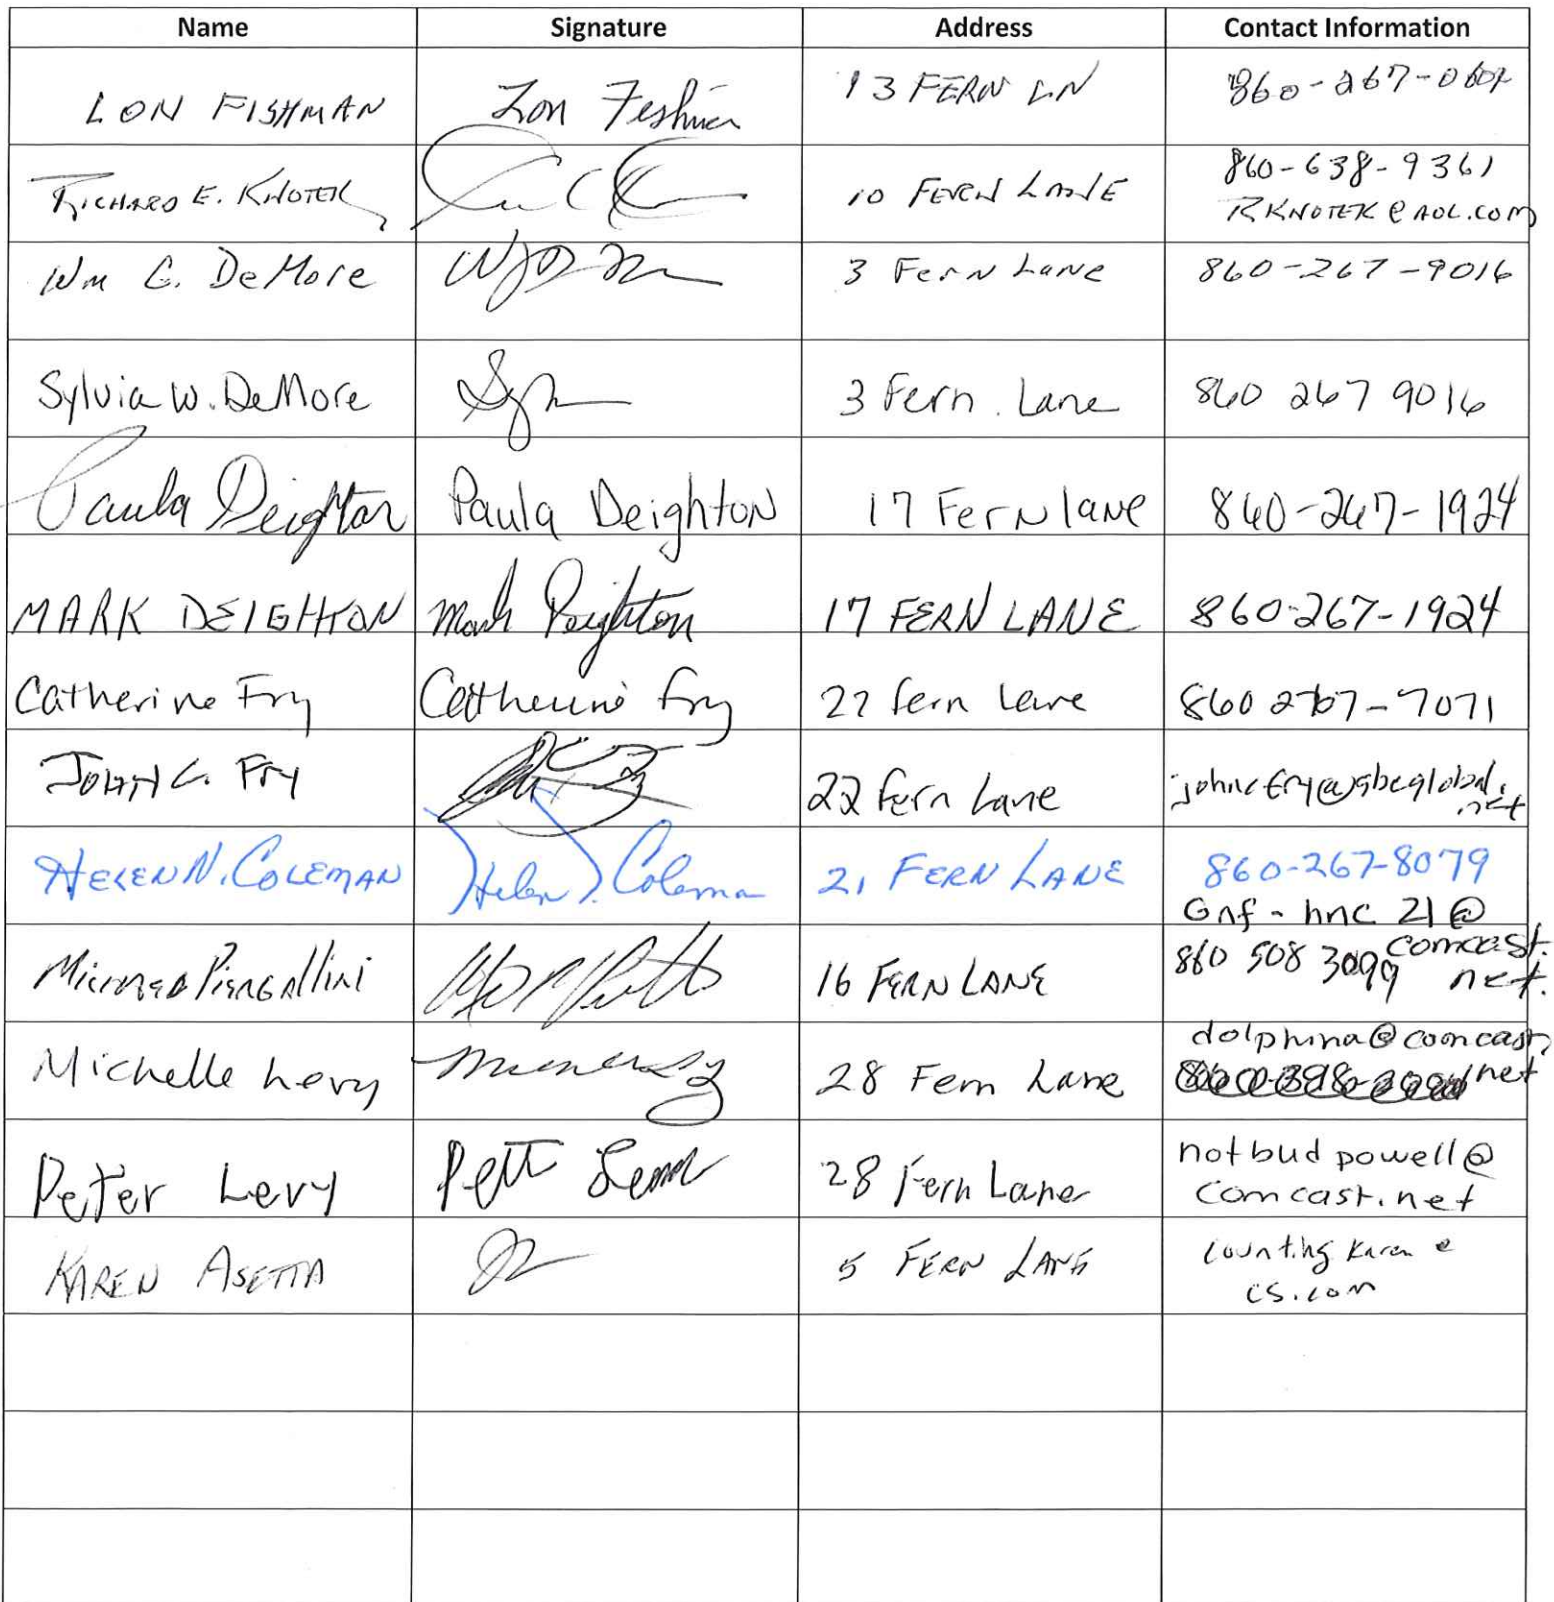 Name Signature Address Contact Information
LON FISHMAN Lon Fishman 13 FERN LN 860-267-
RICHARD E. KNOTEK 10 FERN LANE 860-638-9361
RKNOTEK@AOL.COM
Wm C. DeMore 3 Fern Lane 860-267-9016
Sylvia W. DeMore 3 Fern Lane 860 267 9016
Paula Deighton Paula Deighton 17 Fern lane 860-267-1924
MARK DEIGHTON Mark Deighton 17 FERN LANE 860-267-1924
Catherine Fry Catherine Fry 22 fern lane 860 267-7071
JOHN C. Fry 22 Fern Lane johncfry@sbcglobal.
net
HELEN N. COLEMAN Helen N. Coleman 21 FERN LANE 860-267-8079
Gnf-hnc21@
comcast.
net.
16 FERN LANE 860 508 3099
Michelle Levy 28 Fern Lane dolphina@comcast
.net
Peter Levy 28 Fern Lane notbudpowell@
comcast.net
KAREN ASETTA 5 FERN LANE counting karen@
cs.com